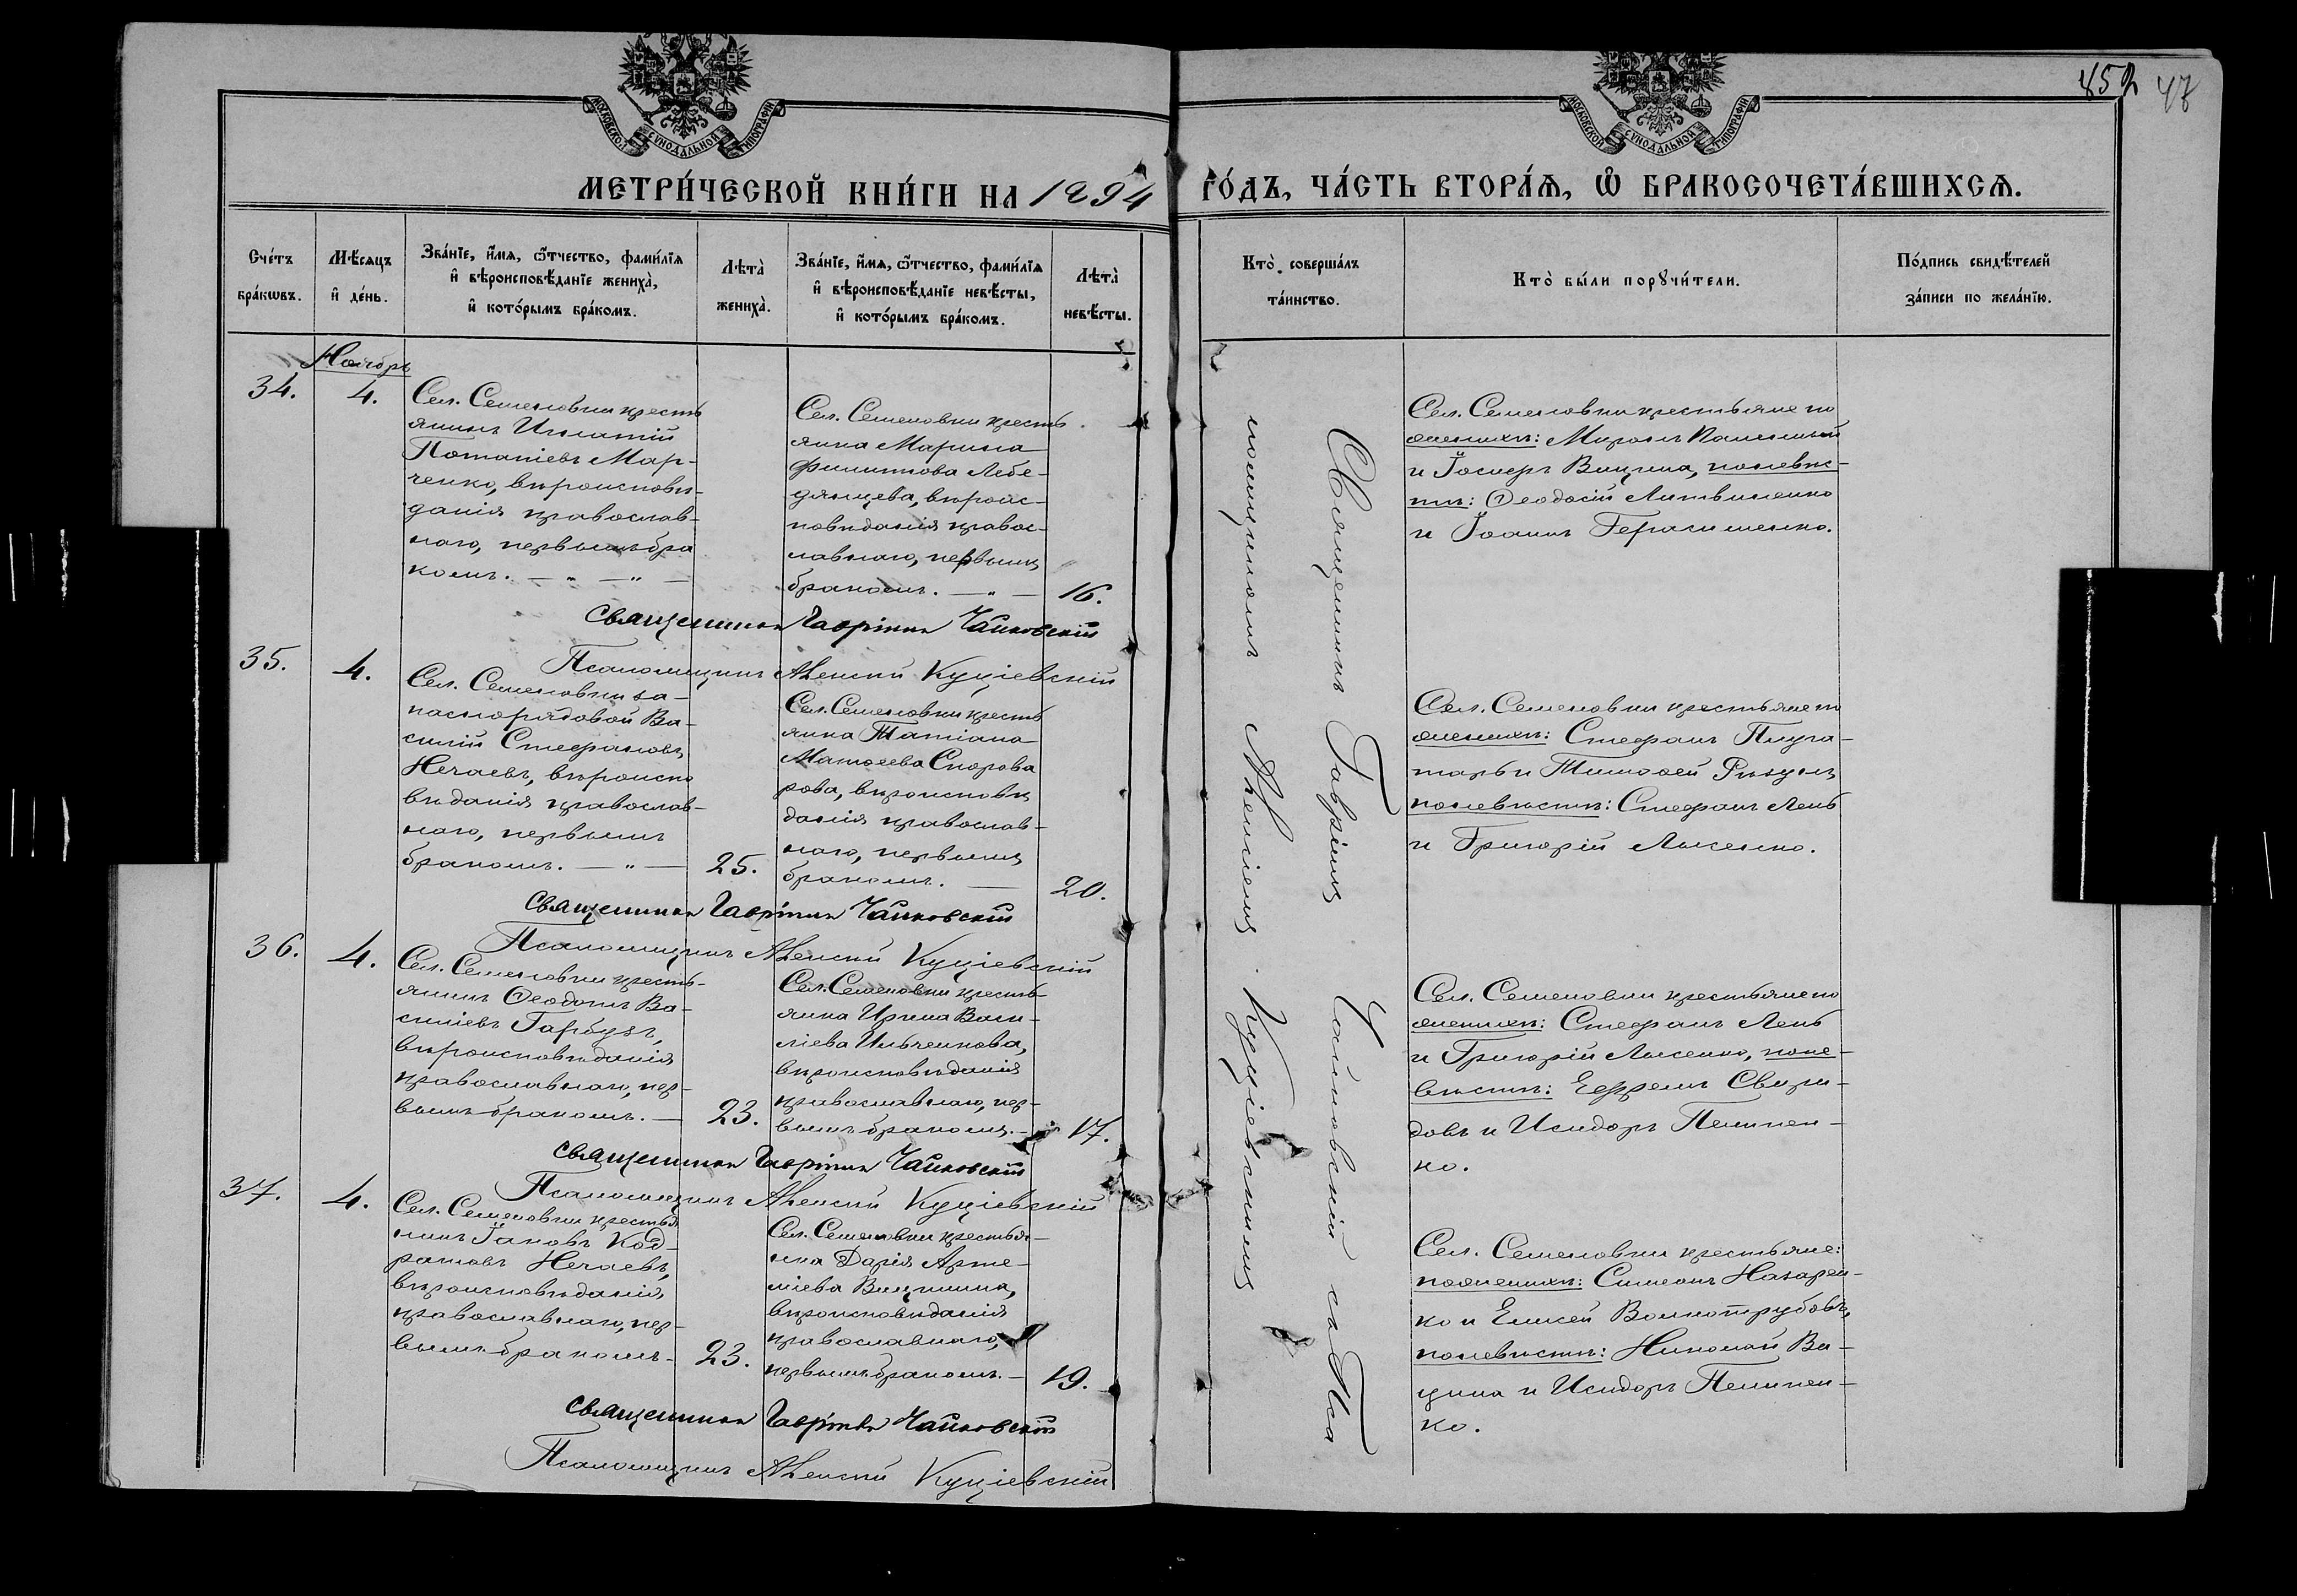 МОСКОВСКОЙ СУНОДАЛЬНОЙ ТИПОГРАФІИ
МОСКОВСКОЙ СУНОДАЛЬНОЙ ТИПОГРАФІИ
452 47
МЕТРИ́ЧЕСКОЙ КНИ́ГИ НА 1894 ГО́ДЪ, ЧА́СТЬ ВТОРА́Ѧ, Ѽ БРАКОСОЧЕТА́ВШИХСѦ.
Сче́тъ
бра́кѡвъ.
Мѣ́сяцъ
и҆ де́нь.
Зва́нїе, и҆́мѧ, ѻ҆́тчество, фами́лїѧ
и҆ вѣроисповѣ́данїе жениха̀,
и҆ кото́рымъ бра́комъ.
Лѣта̀
жениха̀.
Зва́нїе, и҆́мѧ, ѻ҆́тчество, фами́лїѧ
и҆ вѣроисповѣ́данїе невѣ́сты,
и҆ кото́рымъ бра́комъ.
Лѣта̀
невѣ́сты.
Кто̀ соверша́лъ
та́инство.
Кто̀ бы́ли порꙋчи́тели.
По́дпись свидѣ́телей
за́писи по жела́нїю.
Ноябрь
34.
4.
Сел. Семеновки кресть
янинъ Игнатій
Потапіевъ Мар-
ченко, вѣроисповѣ-
данія православ-
наго, первымъ бра
комъ. — „ — „ —
Сел. Семеновки кресть
янка Марина
Филиппова Лебе-
дянцева, вѣроис-
повѣданія правос-
лавнаго, первымъ
бракомъ. — „ —
16.
Сел. Семеновки крестьяне по
женихѣ: Миронъ
и Іосифъ Вицина, по невѣс-
тѣ: Ѳеодосій Литвиненко
и Іоаннъ Герасименко.
Священникъ Гавріилъ Чайковскій
Псаломщикъ Алексій Куціевскій
35.
4.
Сел. Семеновки за-
пасно рядовой Ва-
силій Стефановъ
Нечаевъ, вѣроиспо
вѣданія православ-
наго, первымъ
бракомъ. — „ —
25.
Сел. Семеновки кресть
янка Татіана
Матѳеева Скорова
рова, вѣроисповѣ
данія православ-
наго, первымъ
бракомъ. —
20.
Сел. Семеновки крестьяне по
женихѣ: Стефанъ Плуга-
тарь и Тимоѳей Рѣзунъ
по невѣстѣ: Стефанъ Лень
и Григорій Лысенко.
Священникъ Гавріилъ Чайковскій
Псаломщикъ Алексій Куціевскій
36.
4.
Сел. Семеновки кресть-
янинъ Ѳеодотъ Ва-
силіевъ Гарбузъ,
вѣроисповѣданія
православнаго, пер-
вымъ бракомъ. —
23.
Сел. Семеновки кресть-
янка Ирина Васи-
ліева Ильченкова,
вѣроисповѣданія
православнаго, пер-
вымъ бракомъ. —
17.
Сел. Семеновки крестьяне по
женихѣ: Стефанъ Лень
и Григорій Лысенко, по не-
вѣстѣ: Ефремъ Свири-
довъ и Исидоръ Пелипен-
ко.
Священникъ Гавріилъ Чайковскій
Псаломщикъ Алексій Куціевскій
37.
4.
Сел. Семеновки крестья
нинъ Іаковъ Код-
ратовъ Нечаевъ,
вѣроисповѣданія
православнаго, пер-
вымъ бракомъ —
23.
Сел. Семеновки крестья-
нка Дарія Арте-
міева Вицинина,
вѣроисповѣданія
православнаго,
первымъ бракомъ. —
19.
Сел. Семеновки крестьяне:
по женихѣ: Симеонъ Назарен-
ко и Елисей Волкотрубовъ,
по невѣстѣ: Николай Ви-
цина и Исидоръ Пелипен-
ко.
Священникъ Гавріилъ Чайковскій
Псаломщикъ Алексій Куціевскій
Священникъ Гавріилъ Чайковскій съ Пса
ломщикомъ Алексіемъ Куціевскимъ